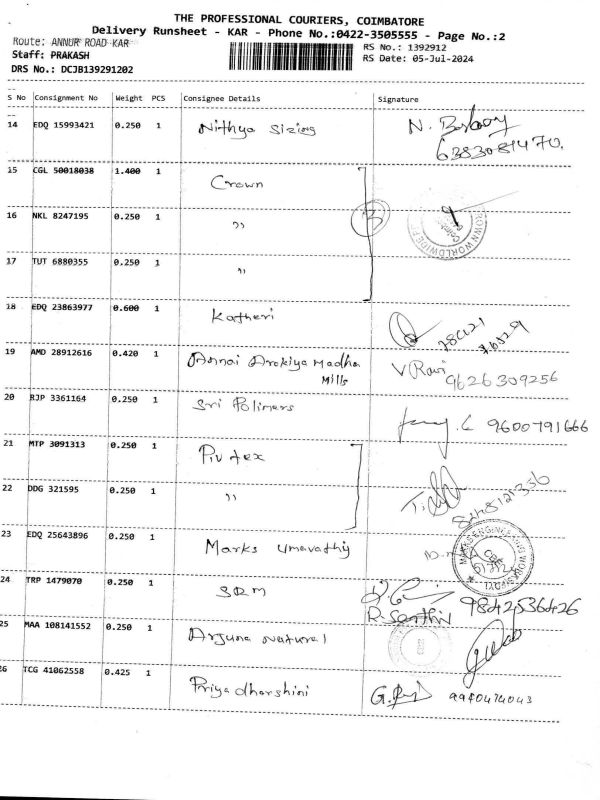 THE PROFESSIONAL COURIERS, COIMBATORE
Delivery Runsheet - KAR - Phone No.:0422-3505555 - Page No.:2
Route: ANNUR ROAD KAR
RS No.: 1392912
Staff: PRAKASH
RS Date: 05-Jul-2024
DRS No.: DCJB139291202
S No Consignment No Weight PCS Consignee Details Signature
14 EDQ 15993421 0.250 1 Nithya Sizing
15 CGL 50018038 1.400 1 Crown
16 NKL 8247195 0.250 1 "
3
17 TUT 6880355 0.250 1 "
18 EDQ 23863977 0.600 1 Katheri
19 AMD 28912616 0.420 1 Annai Arokiya Madha
Mills V Ravi 9626309256
20 RJP 3361164 0.250 1 Sri Polimers 9600791666
21 MTP 3091313 0.250 1 Piv tex
22 DDG 321595 0.250 1 "
23 EDQ 25643896 0.250 1 Marks Umavathy
24 TRP 1479070 0.250 1 SRM 9842536426
R. Senthil
25 MAA 108141552 0.250 1 Arjuna Natural
26 TCG 41062558 0.425 1 Priya dharshini